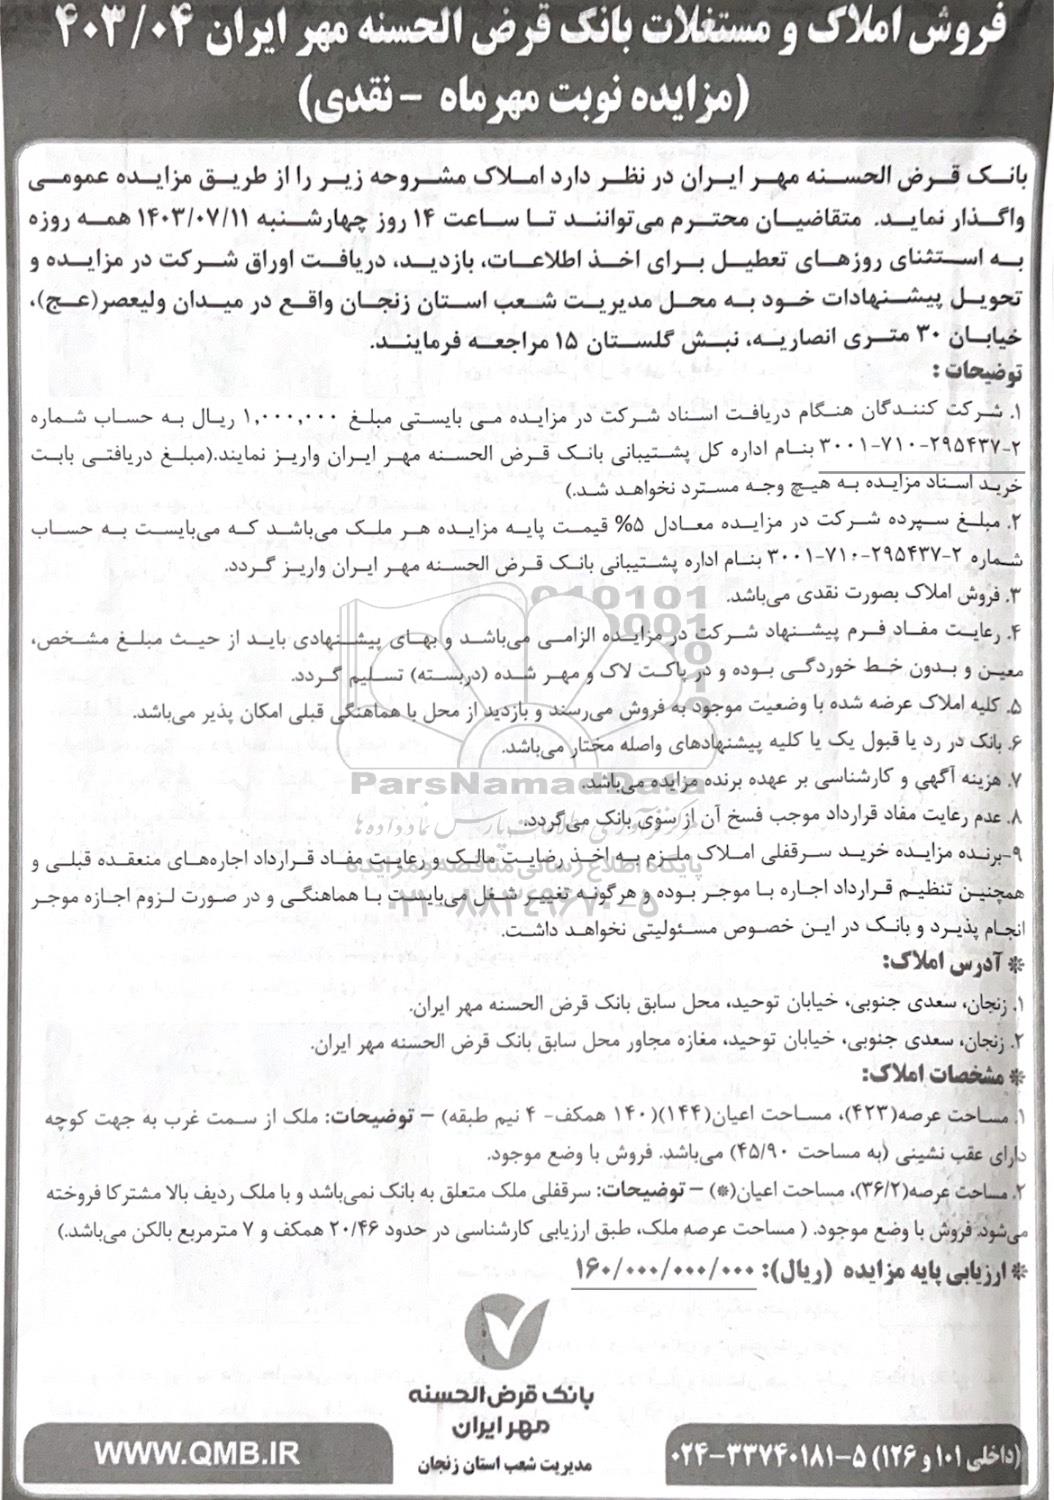 فروش املاک و مستغلات بانک قرض الحسنه مهر ایران ۴۰۳/۰۴
(مزایده نوبت مهرماه - نقدی)
بانک قرض الحسنه مهر ایران در نظر دارد املاک مشروحه زیر را از طریق مزایده عمومی
واگذار نماید. متقاضیان محترم می‌توانند تا ساعت ۱۴ روز چهارشنبه ۱۴۰۳/۰۷/۱۱ همه روزه
به استثنای روزهای تعطیل برای اخذ اطلاعات، بازدید، دریافت اوراق شرکت در مزایده و
تحویل پیشنهادات خود به محل مدیریت شعب استان زنجان واقع در میدان ولیعصر(عج)،
خیابان ۳۰ متری انصاریه، نبش گلستان ۱۵ مراجعه فرمایند.
توضیحات :
۱. شرکت کنندگان هنگام دریافت اسناد شرکت در مزایده می بایستی مبلغ ۱,۰۰۰,۰۰۰ ریال به حساب شماره
۳۰۰۱-۷۱۰-۲۹۵۴۳۷-۲ بنام اداره کل پشتیبانی بانک قرض الحسنه مهر ایران واریز نمایند.(مبلغ دریافتی بابت
خرید اسناد مزایده به هیچ وجه مسترد نخواهد شد.)
۲. مبلغ سپرده شرکت در مزایده معادل ۵% قیمت پایه مزایده هر ملک می‌باشد که می‌بایست به حساب
شماره ۳۰۰۱-۷۱۰-۲۹۵۴۳۷-۲ بنام اداره پشتیبانی بانک قرض الحسنه مهر ایران واریز گردد.
۳. فروش املاک بصورت نقدی می‌باشد.
۴. رعایت مفاد فرم پیشنهاد شرکت در مزایده الزامی می‌باشد و بهای پیشنهادی باید از حیث مبلغ مشخص،
معین و بدون خط خوردگی بوده و در پاکت لاک و مهر شده (دربسته) تسلیم گردد.
۵. کلیه املاک عرضه شده با وضعیت موجود به فروش می‌رسند و بازدید از محل با هماهنگی قبلی امکان پذیر می‌باشد.
۶. بانک در رد یا قبول یک یا کلیه پیشنهادهای واصله مختار می‌باشد.
۷. هزینه آگهی و کارشناسی بر عهده برنده مزایده می‌باشد.
ParsNamadData
۸. عدم رعایت مفاد قرارداد موجب فسخ آن از سوی بانک می‌گردد.
۹-برنده مزایده خرید سرقفلی املاک ملزم به اخذ رضایت مالک و رعایت مفاد قرارداد اجاره‌های منعقده قبلی و
پایگاه اطلاع رسانی مناقصه و مزایده
همچنین تنظیم قرارداد اجاره با موجر بوده و هرگونه تغییر شغل می‌بایست با هماهنگی و در صورت لزوم اجازه موجر
انجام پذیرد و بانک در این خصوص مسئولیتی نخواهد داشت.
* آدرس املاک:
۱. زنجان، سعدی جنوبی، خیابان توحید، محل سابق بانک قرض الحسنه مهر ایران.
۲. زنجان، سعدی جنوبی، خیابان توحید، مغازه مجاور محل سابق بانک قرض الحسنه مهر ایران.
* مشخصات املاک:
۱. مساحت عرصه(۴۲۳)، مساحت اعیان(۱۴۴)(۱۴۰ همکف- ۴ نیم طبقه) - توضیحات: ملک از سمت غرب به جهت کوچه
دارای عقب نشینی (به مساحت ۴۵/۹۰) می‌باشد. فروش با وضع موجود.
۲. مساحت عرصه(۳۶/۲)، مساحت اعیان(*) - توضیحات: سرقفلی ملک متعلق به بانک نمی‌باشد و با ملک ردیف بالا مشترکا فروخته
می‌شود. فروش با وضع موجود. ( مساحت عرصه ملک، طبق ارزیابی کارشناسی در حدود ۲۰/۴۶ همکف و ۷ مترمربع بالکن می‌باشد.)
* ارزیابی پایه مزایده (ریال): ۱۶۰/۰۰۰/۰۰۰/۰۰۰
بانک قرض الحسنه
مهر ایران
مدیریت شعب استان زنجان
(داخلی ۱۰۱ و ۱۲۶) ۵-۰۲۴-۳۳۷۴۰۱۸۱
WWW.QMB.IR